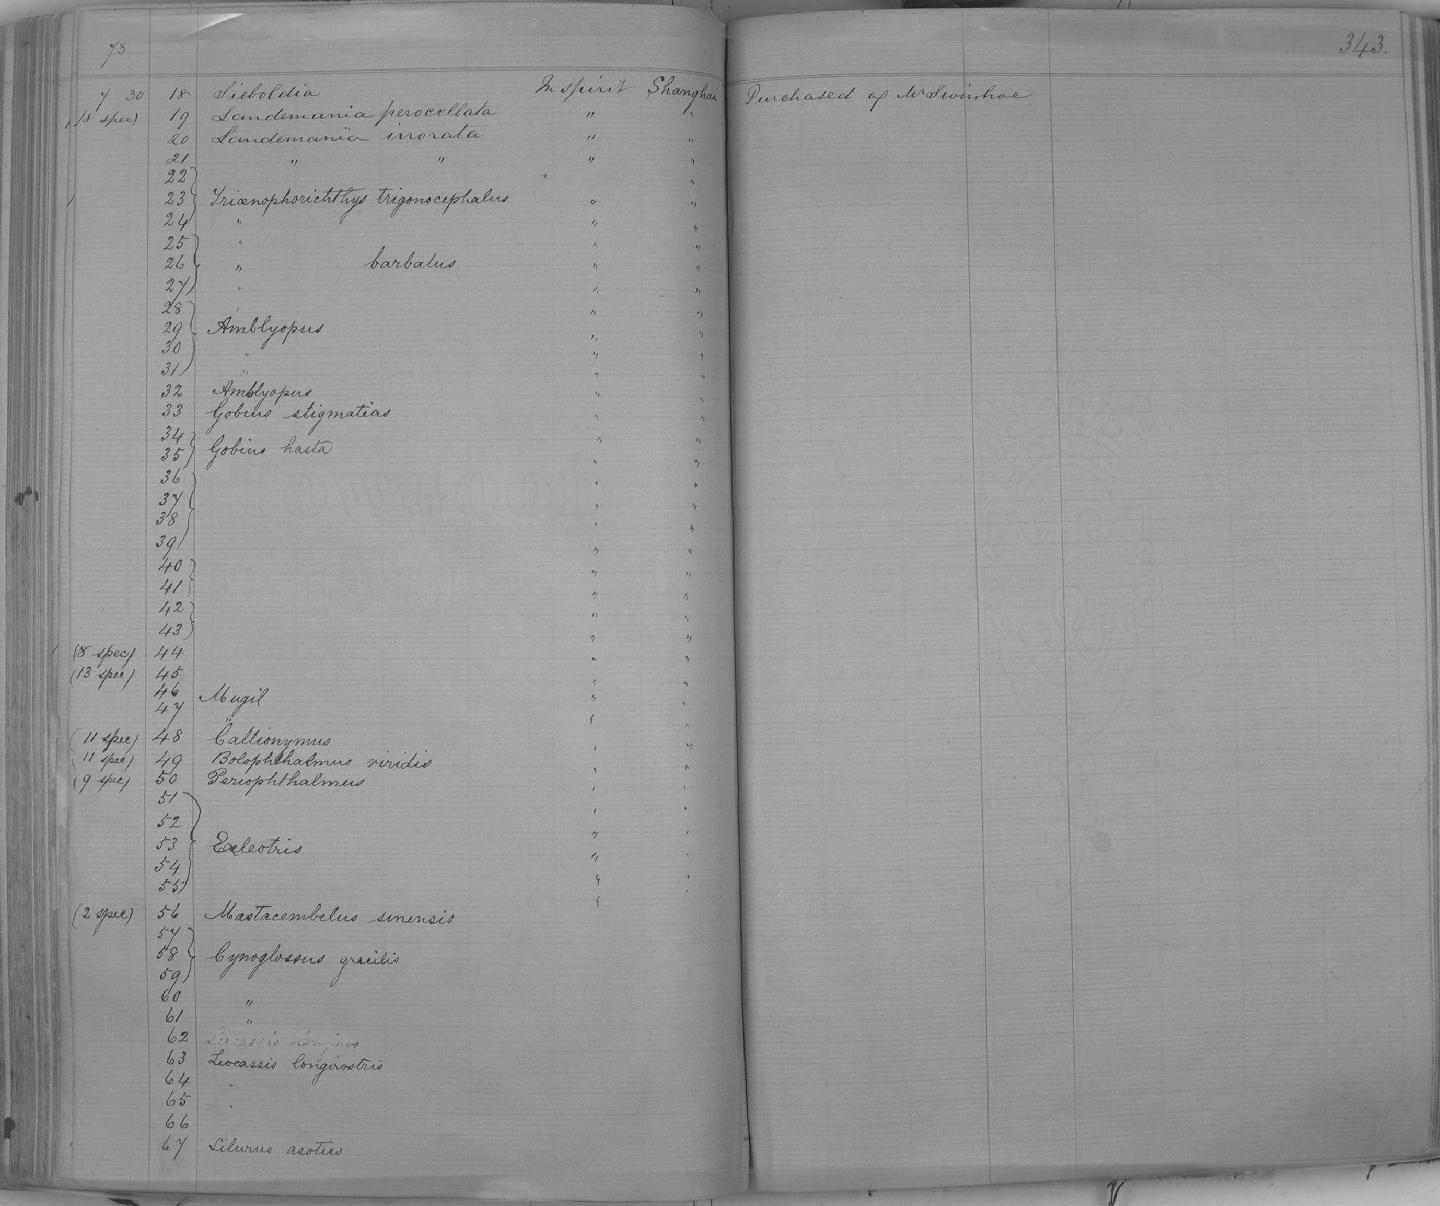 73
343.
7 30 18 Sieboldia In spirit Shanghai Purchased of Mr Swinhoe
(8 spec) 19 Landemania perocellata " "
20 Landemania irrorata " "
21 " " " "
22 "
23 Triænophorichthys trigonocephalus " "
24 " " "
25 " " "
26 " barbatus " "
27 " " "
28 " "
29 Amblyopus " "
30 " " "
31 " " "
32 Amblyopus " "
33 Gobius stigmatias " "
34 " "
35 Gobius hasta " "
36 " "
37 " "
38 " "
39 " "
40 " "
41 " "
42 " "
43 " "
(8 spec) 44 " "
(13 spec) 45 " "
46 Mugil " "
47 " " "
(11 spec) 48 Callionymus " "
(11 spec) 49 Bolophthalmus viridis " "
(9 spec) 50 Periophthalmus " "
51 " "
52 " "
53 Eeleotris " "
54 " "
55 "
(2 spec) 56 Mastacembelus sinensis
57
58 Cynoglossus gracilis
59
60 "
61 "
62
63 Liocassis longirostris
64 "
65 "
66
67 Silurus asotus